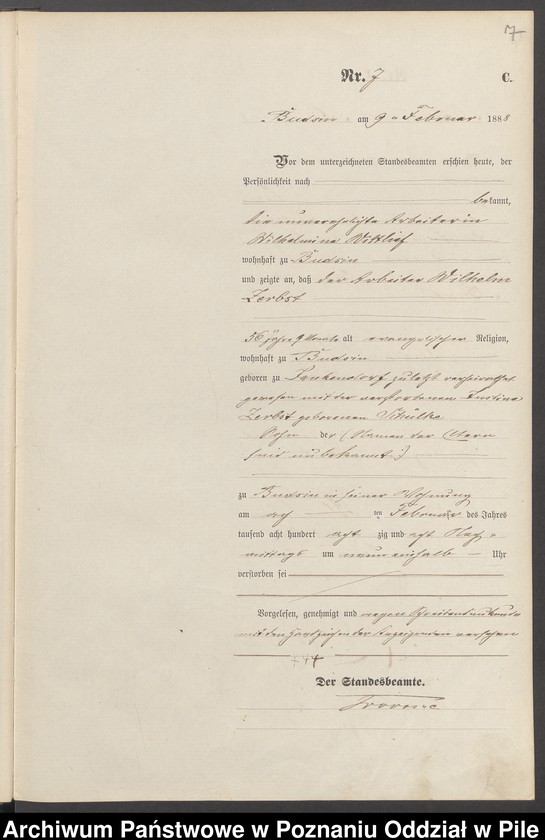 7
Nr. 7 C.
Budsin am 9ten Februar 1888
Vor dem unterzeichneten Standesbeamten erschien heute, der
Persönlichkeit nach
bekannt,
die unverehelichte Arbeiterin
Wilhelmine Wittlief
wohnhaft zu Budsin
und zeigte an, daß der Arbeiter Wilhelm
Zerbst
56 Jahre 9 Monate alt evangelischer Religion,
wohnhaft zu Budsin
geboren zu zuletzt verheirathet
gewesen mit der verstorbenen Justine
Zerbst geborenen Schülke
Sohn der (Namen der Eltern
sind unbekannt)
zu Budsin in seiner Wohnung
am acht ten Februar des Jahres
tausend acht hundert achtzig und acht Nach-
mittags um neun einhalb Uhr
verstorben sei
Vorgelesen, genehmigt und wegen Schreibensunkunde
mit den Handzeichen der Anzeigenden versehen
+++
Der Standesbeamte.
Archiwum Państwowe w Poznaniu Oddział w Pile